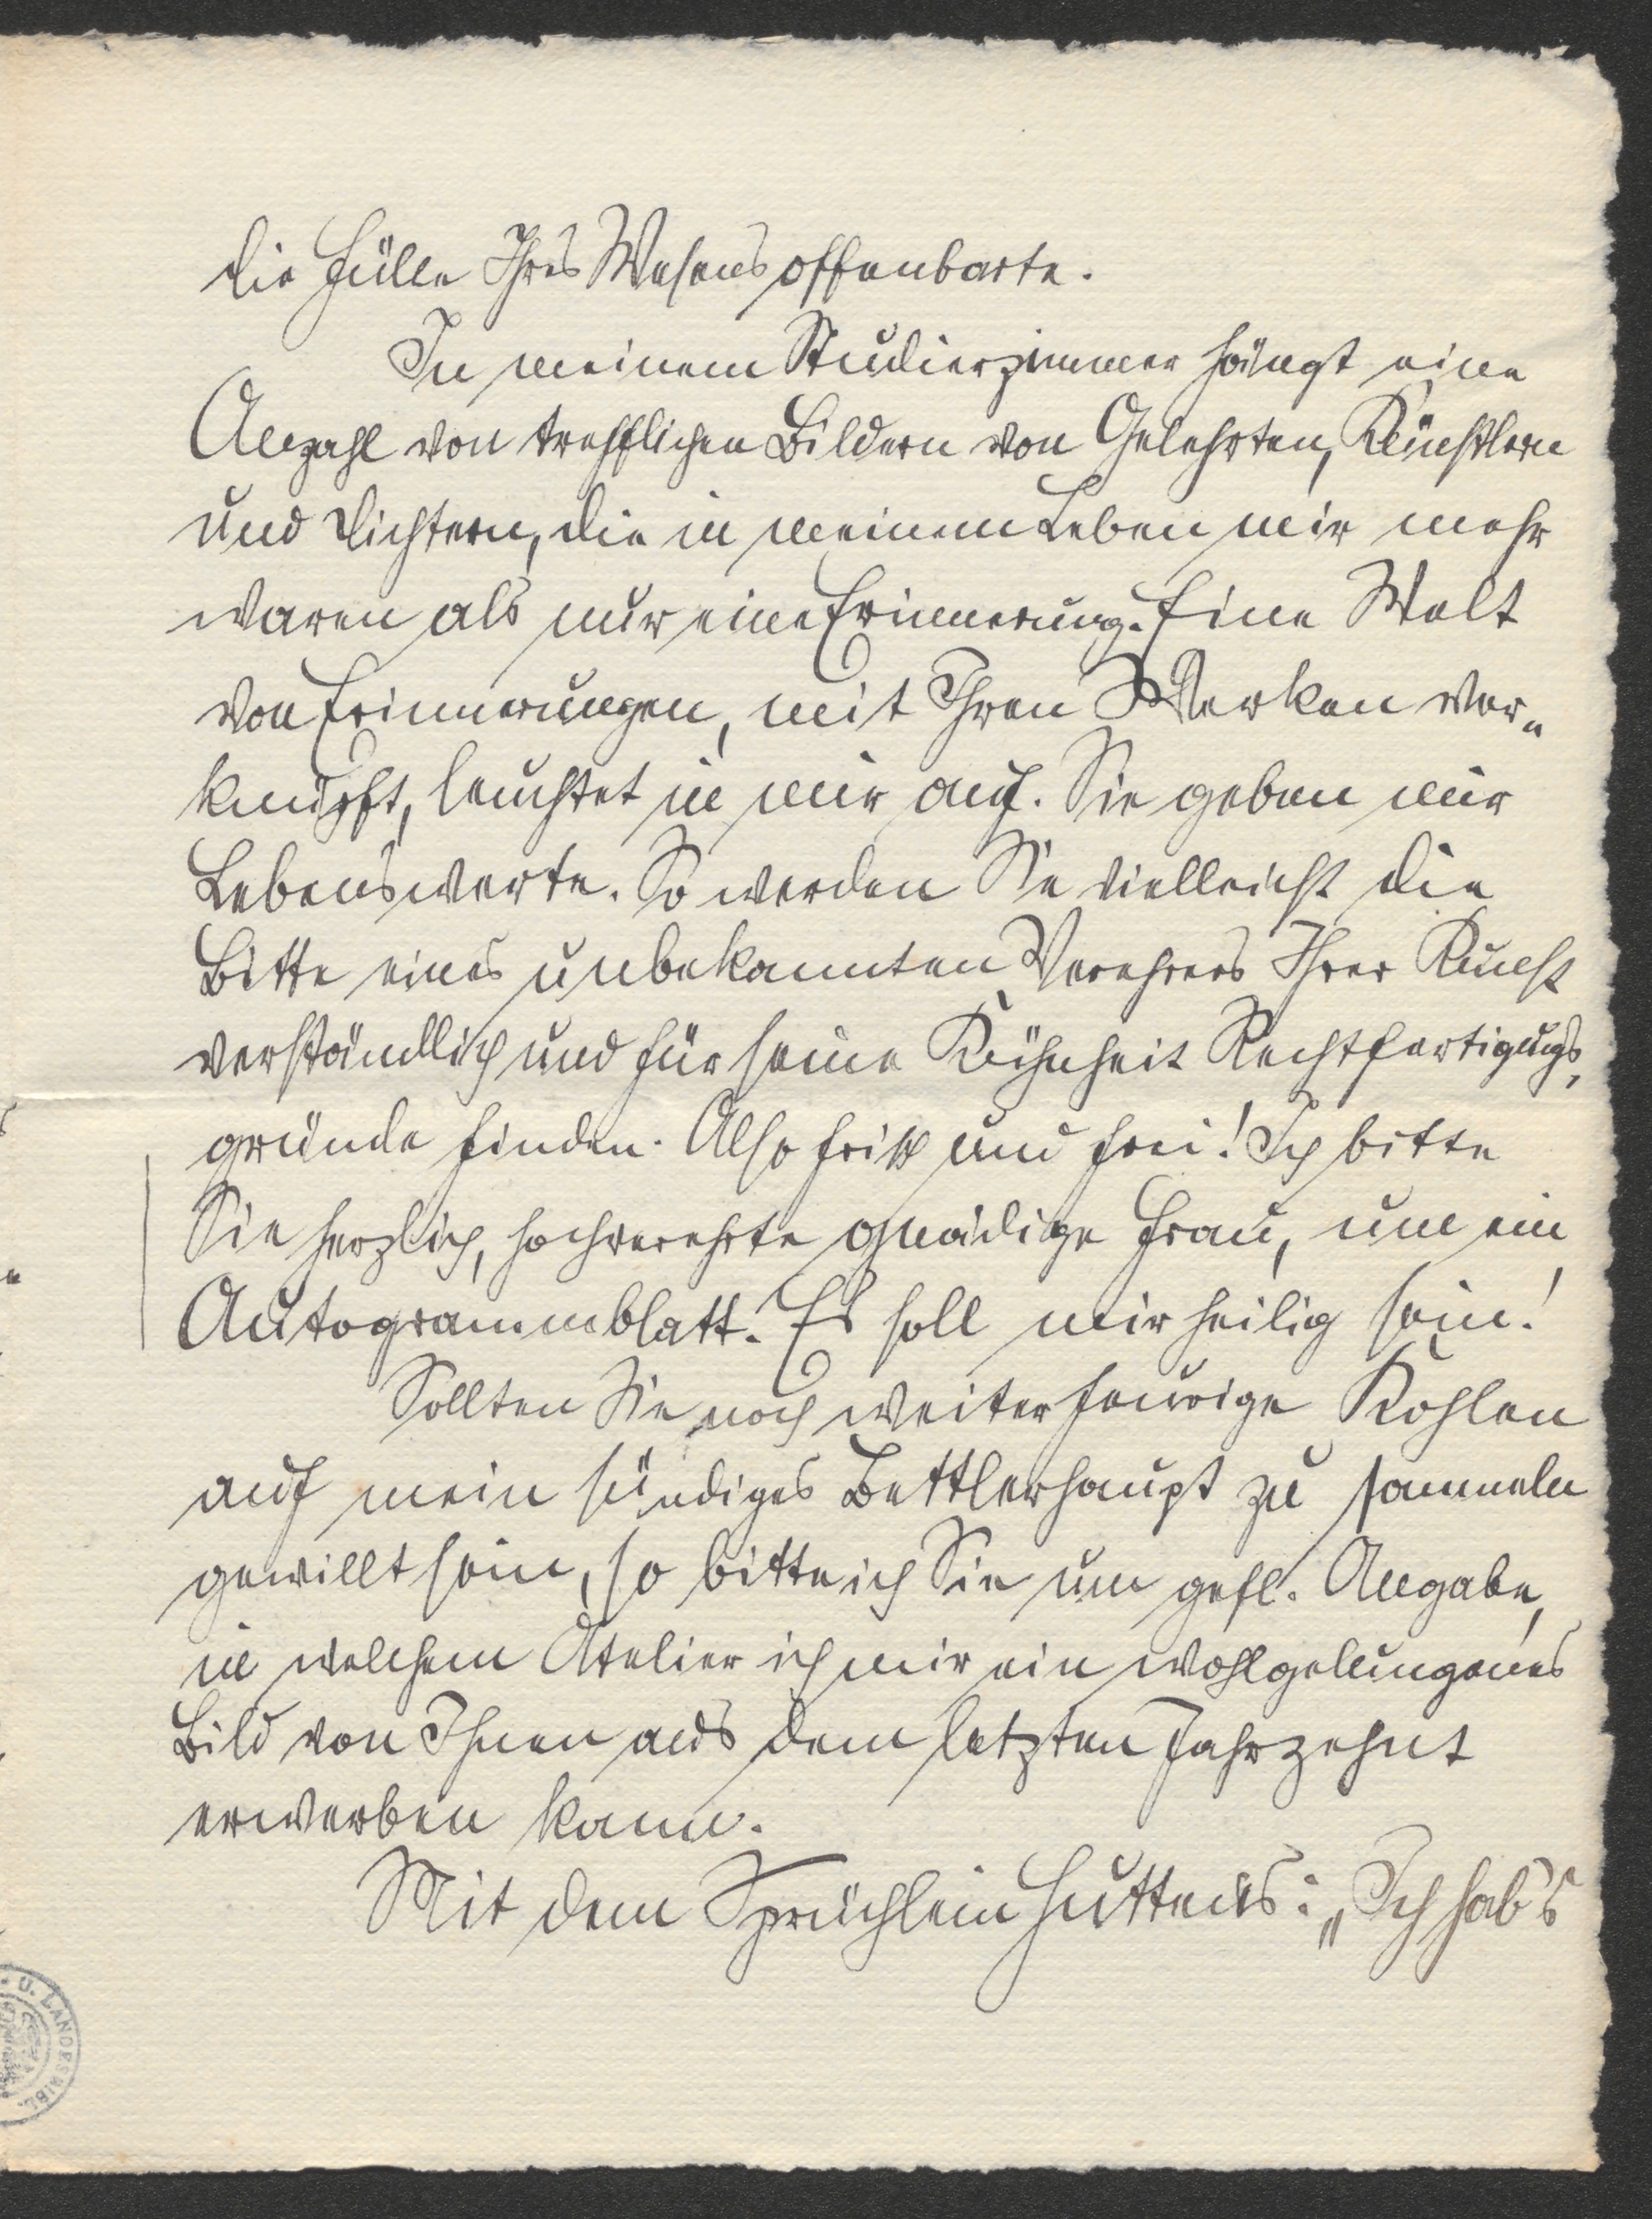 die Fülle Ihres Wesens offenbarte.
In meinem Studierzimmer hängt eine
Anzahl von trefflichen Bildern von Gelehrten, Künstlern
und Dichtern, die in meinem Leben mir mehr
waren als nur eine Erinnerung. Eine Welt
von Erinnerungen, mit Ihren Werken ver„
knüpft, leuchtet in mir auf. Sie geben mir
Lebenswerte. So werden Sie vielleicht die
Bitte eines unbekannten Verehrers Ihrer Kunst
verständlich und für seine Kühnheit Rechtfertigungs,
gründe finden. Also frisch und frei! Ich bitte
Sie herzlich, hochverehrte gnädige Frau, um ein
Autogrammblatt. Es soll mir heilig sein!
Sollten Sie noch weiter feurige Kohlen
auf mein sündiges Bettlerhaupt zu sammeln
gewillt sein, so bitte ich Sie um gefl. Angabe,
in welchem Atelier ich mir ein wohlgelungenes
Bild von Ihnen aus dem letzten Jahrzehnt
erwerben kann.
Mit dem Sprüchlein Huttens: „Ich hab's
U. LANDESBIBL.